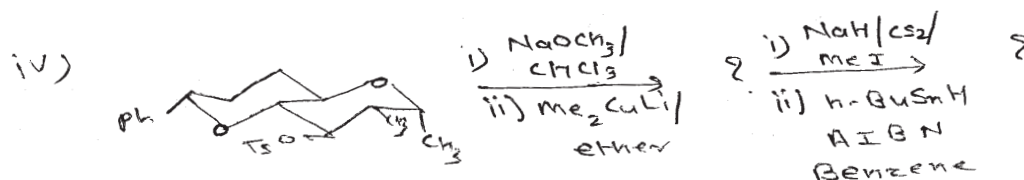 iv)
Ph
O
O
TsO
CH3
CH3
i) NaOCH3/
CHCl3
ii) Me2CuLi/
ether
?
i) NaH/CS2/
MeI
ii) n-BuSnH
AIBN
Benzene
?